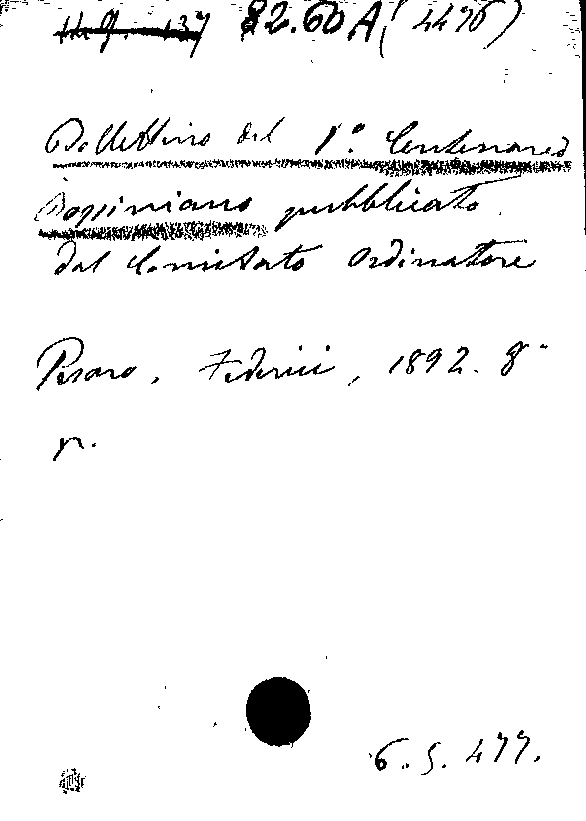 82.60 A (4476)
Bollettino del 1º. Centenario
Rossiniano pubblicato
dal Comitato Ordinatore
Pesaro, Federici, 1892. 8º
6.5.477.